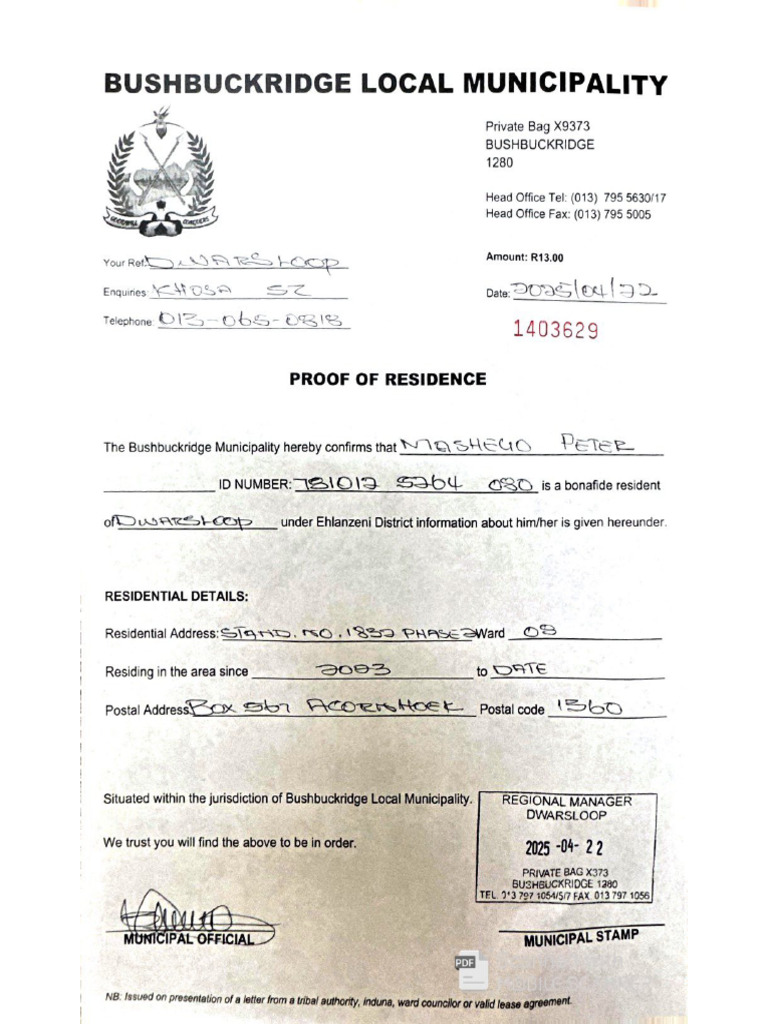 BUSHBUCKRIDGE LOCAL MUNICIPALITY
Private Bag X9373
BUSHBUCKRIDGE
1280
Head Office Tel: (013) 795 5630/17
Head Office Fax: (013) 795 5005
Your Ref: DWARSLOOP
Amount: R13.00
Enquiries: KHOSA SZ
Date: 2025/04/22
Telephone: 013-065-0818
1403629
PROOF OF RESIDENCE
The Bushbuckridge Municipality hereby confirms that MASHEGO PETER
ID NUMBER: 781012 5264 080 is a bonafide resident
of DWARSLOOP under Ehlanzeni District information about him/her is given hereunder.
RESIDENTIAL DETAILS:
Residential Address: STAND. NO. 1832 PHASE 2 Ward 08
Residing in the area since to DATE
Postal Address: BOX 567 ACORNHOEK Postal code 1360
Situated within the jurisdiction of Bushbuckridge Local Municipality.
We trust you will find the above to be in order.
REGIONAL MANAGER
DWARSLOOP
2025 -04- 22
PRIVATE BAG X373
BUSHBUCKRIDGE 1280
TEL. 013 797 1054/5/7 FAX 013 797 1056
MUNICIPAL OFFICIAL
MUNICIPAL STAMP
PDF
NB: Issued on presentation of a letter from a tribal authority, induna, ward councilor or valid lease agreement.